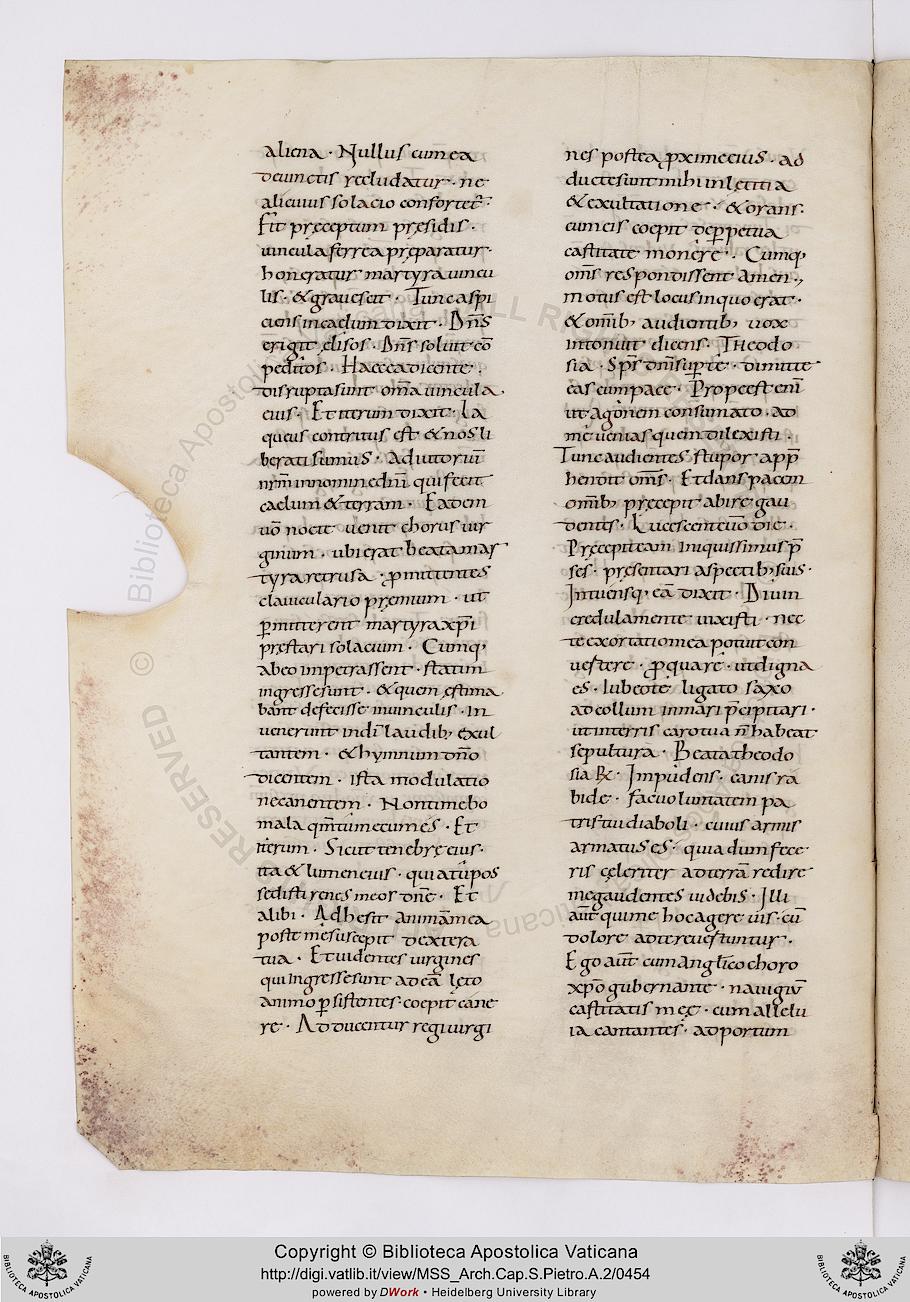 aliena · Nullus cum ea
deiunctis recludatur · ne
alicuius solacio confortet᷑ ·
Fit pręceptum pręsidis ·
uincula ferrea pręparatur ·
honeratur martyra uincu
lis · & grauescit · Tunc aspi
ciens in caelum dixit · Dn̄s
erigit elisos · Dn̄s soluit cō
peditos · Haec ea dicente ·
disrupta sunt om̄a uincula
eius · Et iterum dixit · La
queus contritus est & nos li
berati sumus · Adiutoriū
nr̄m in nomine dn̄i qui fecit
caelum & terram · Eadem
uō nocte uenit chorus uir
ginum · ubi erat beata mar
tyra retrusa · ꝓmittentes
clauiculario pręmium · ut
ꝑmitterent martyra xp̄i
pręstari solacium · Cumq;
ab eo impetrassent · statim
ingresse sunt · & quem ęstima
bant defecisse in uinculis · in
uenerunt in di laudib; exul
tantem · & hymnum dn̄o
dicentem · ista modulatio
ne canentem · Non timebo
mala qm̄ tu mecum es · Et
iterum · Sicut tenebrę eius ·
ita & lumen eius · quia tu pos
sedisti renes meos dn̄e · Et
alibi · Adhesit anima mea
post te me suscepit dextera
tua · Et uidentes uirgines
qui ingresse sunt ad eā lęto
animo ꝑsistentes · coepit cane
re · Adducentur regi uirgi
nes postea ꝓximę eius · ad
ductę sunt mihi in lętitia
& exultatione · & orans ·
cum eis coepit de ꝑpetua
castitate monere · Cumq;
om̄s respondissent amen ·,
motus est locus in quo erat ·
& om̄ib; audientib; uox
intonuit dicens · Theodo
sia · Sp̄s dn̄i super te · dimitte
eas cum pace · Prope est enī
ut agonem consumato · ad
me uenias quem dilexisti ·
Tunc audientes stupor app̄
hendit om̄s · Et dans pacem
om̄ib; pręcepit abire gau
dentes · Lucescente uō die ·
Pręcepit eam iniquissimus p̄
ses · pręsentari aspectib; suis ·
Intuensq; eā dixit · Diu in
credula mente uixisti · nec
te exortatio mea potuit con
uertere · ꝓ quare · ut digna
es · Iubeo te ligato saxo
ad collum in mari p̄cipitari ·
ut in terris caro tua n̄ habeat
sepultura · Beata theodo
sia ℞ · Impudens · canis ra
bide · fac uoluntatem pa
tris tui diaboli · cuius armis
armatus es · quia dum fece
ris cęleriter ad terrā redire
me gaudentes uidebis · Illi
aūt qui me hoc agere uis · cū
dolore ad te reuertuntur ·
Ego aūt cum anglico choro
xp̄o gubernante · nauigiū
castitatis męę · cum allelu
ia cantantes · ad portum
Copyright © Biblioteca Apostolica Vaticana
http://digi.vatlib.it/view/MSS_Arch.Cap.S.Pietro.A.2/0454
powered by DWork • Heidelberg University Library